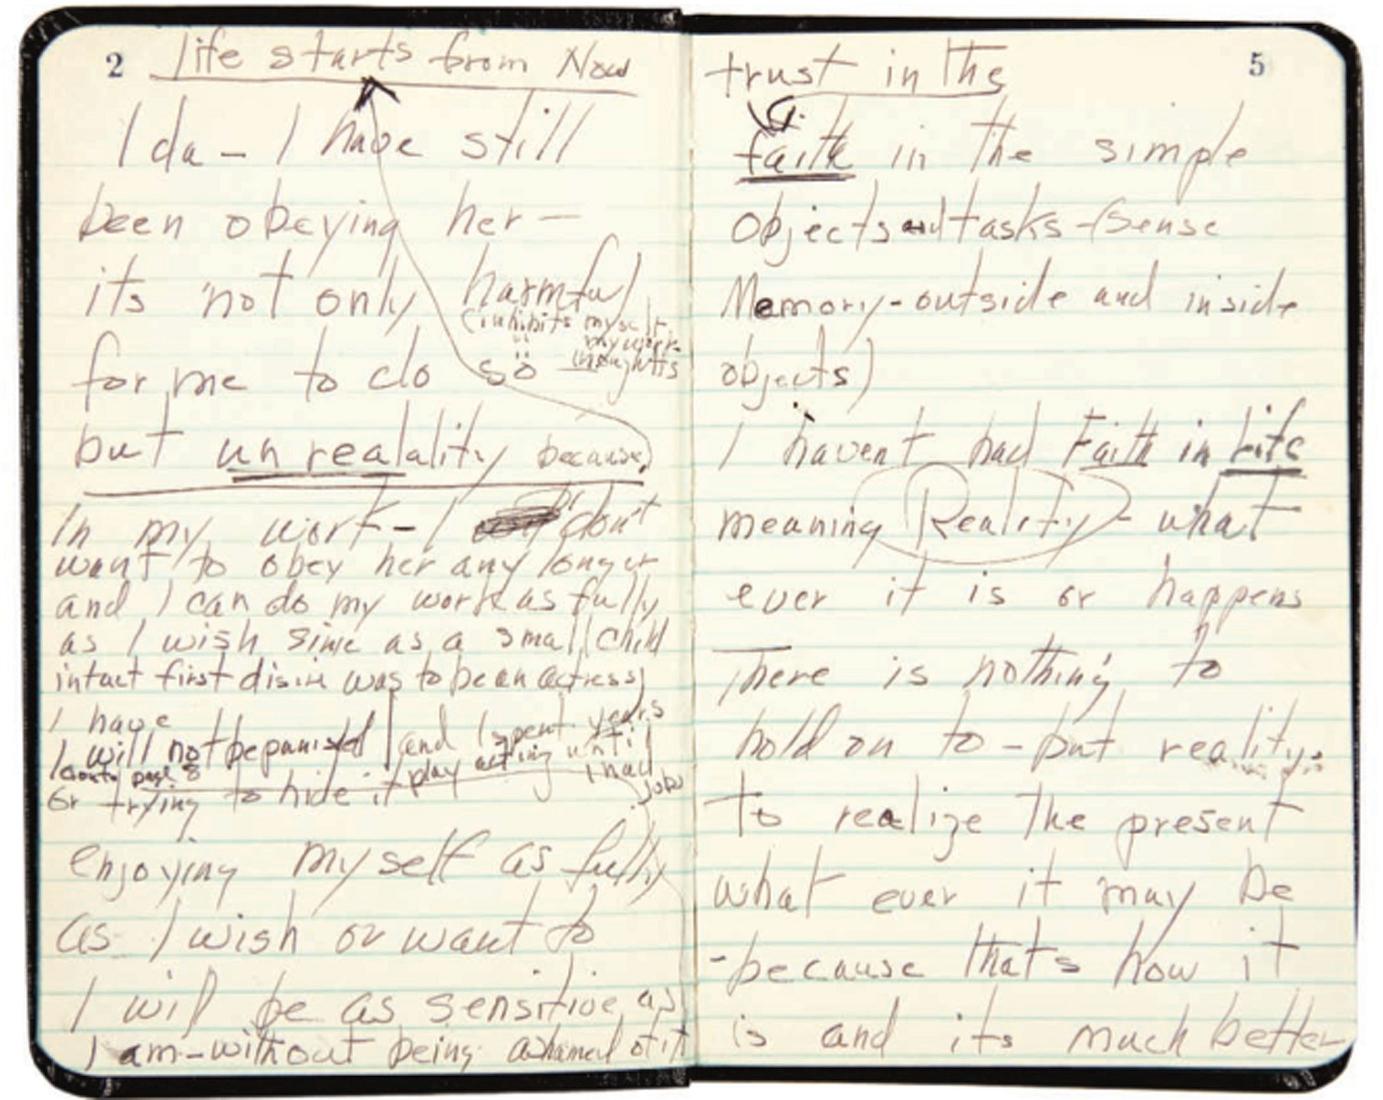 2
life starts from Now
Ida - I have still
been obeying her -
its not only harmful
(inhibits myself
my work
thoughts
for me to do so
but unrealality because
In my work - I don't
want to obey her any longer
and I can do my work as fully
as I wish since as a small child
intact first disire was to be an actress
I have
I will not be punised and I spent years
play acting until
I had
jobs
page 8
or trying to hide it
enjoying myself as fully
as I wish or want to
I will be as sensitive as
I am - without being ashamed of it
5
trust in the
faith in the simple
objects and tasks - (Sense
Memory - outside and inside
objects)
I havent had Faith in Life
meaning Reality - what
ever it is or happens
There is nothing to
hold on to - but reality.
to realize the present
what ever it may be
- because thats how it
is and its much better